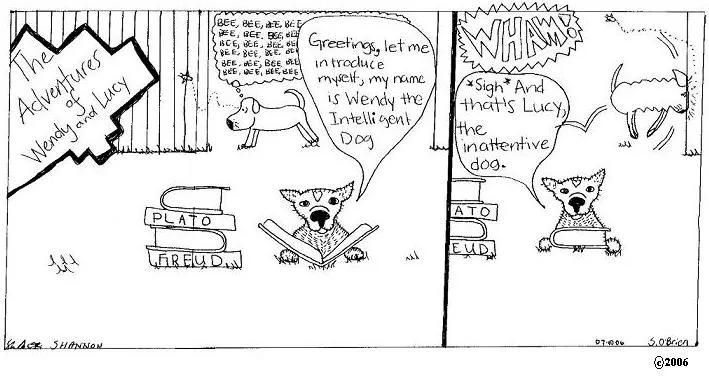 The
Adventures
of
Wendy and Lucy
BEE, BEE, BEE, BEE
BEE, BEE, BEE, BEE
BEE, BEE, BEE, BEE
BEE, BEE, BEE, BEE
BEE, BEE, BEE, BEE
BEE, BEE, BEE, BEE
Greetings, let me
introduce
myself, my name
is Wendy the
Intelligent
Dog
PLATO
FREUD
SHANNON
WHAM!
*Sigh* And
that's Lucy,
the
inattentive
dog.
ATO
EUD
S. O'Brien
©2006